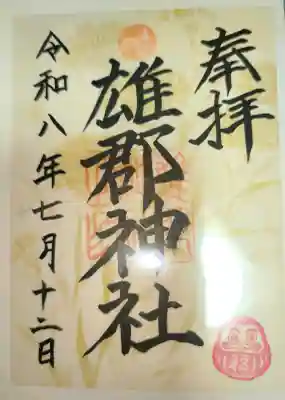 奉拝
雄郡神社
令和八年七月十二日